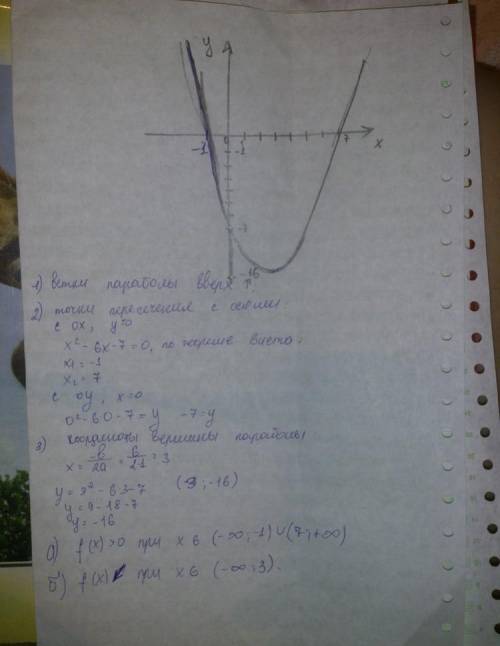 y
-1
0
7
x
-1
-7
-16
1) ветки параболы вверх ↑.
2) точки пересечения с осями.
с ox, y=0
x² - 6x - 7 = 0, по теореме Виета.
x₁ = -1
x₂ = 7
с oy, x=0
0² - 6·0 - 7 = y -7=y
3) координаты вершины параболы
x = -b/2a = 6/2·1 = 3
y = 3² - 6·3 - 7 (3; -16)
y = 9 - 18 - 7
y = -16
а) f(x)>0 при x ∈ (-∞; -1) ∪ (7; +∞)
б) f(x) при x ∈ (-∞; 3).